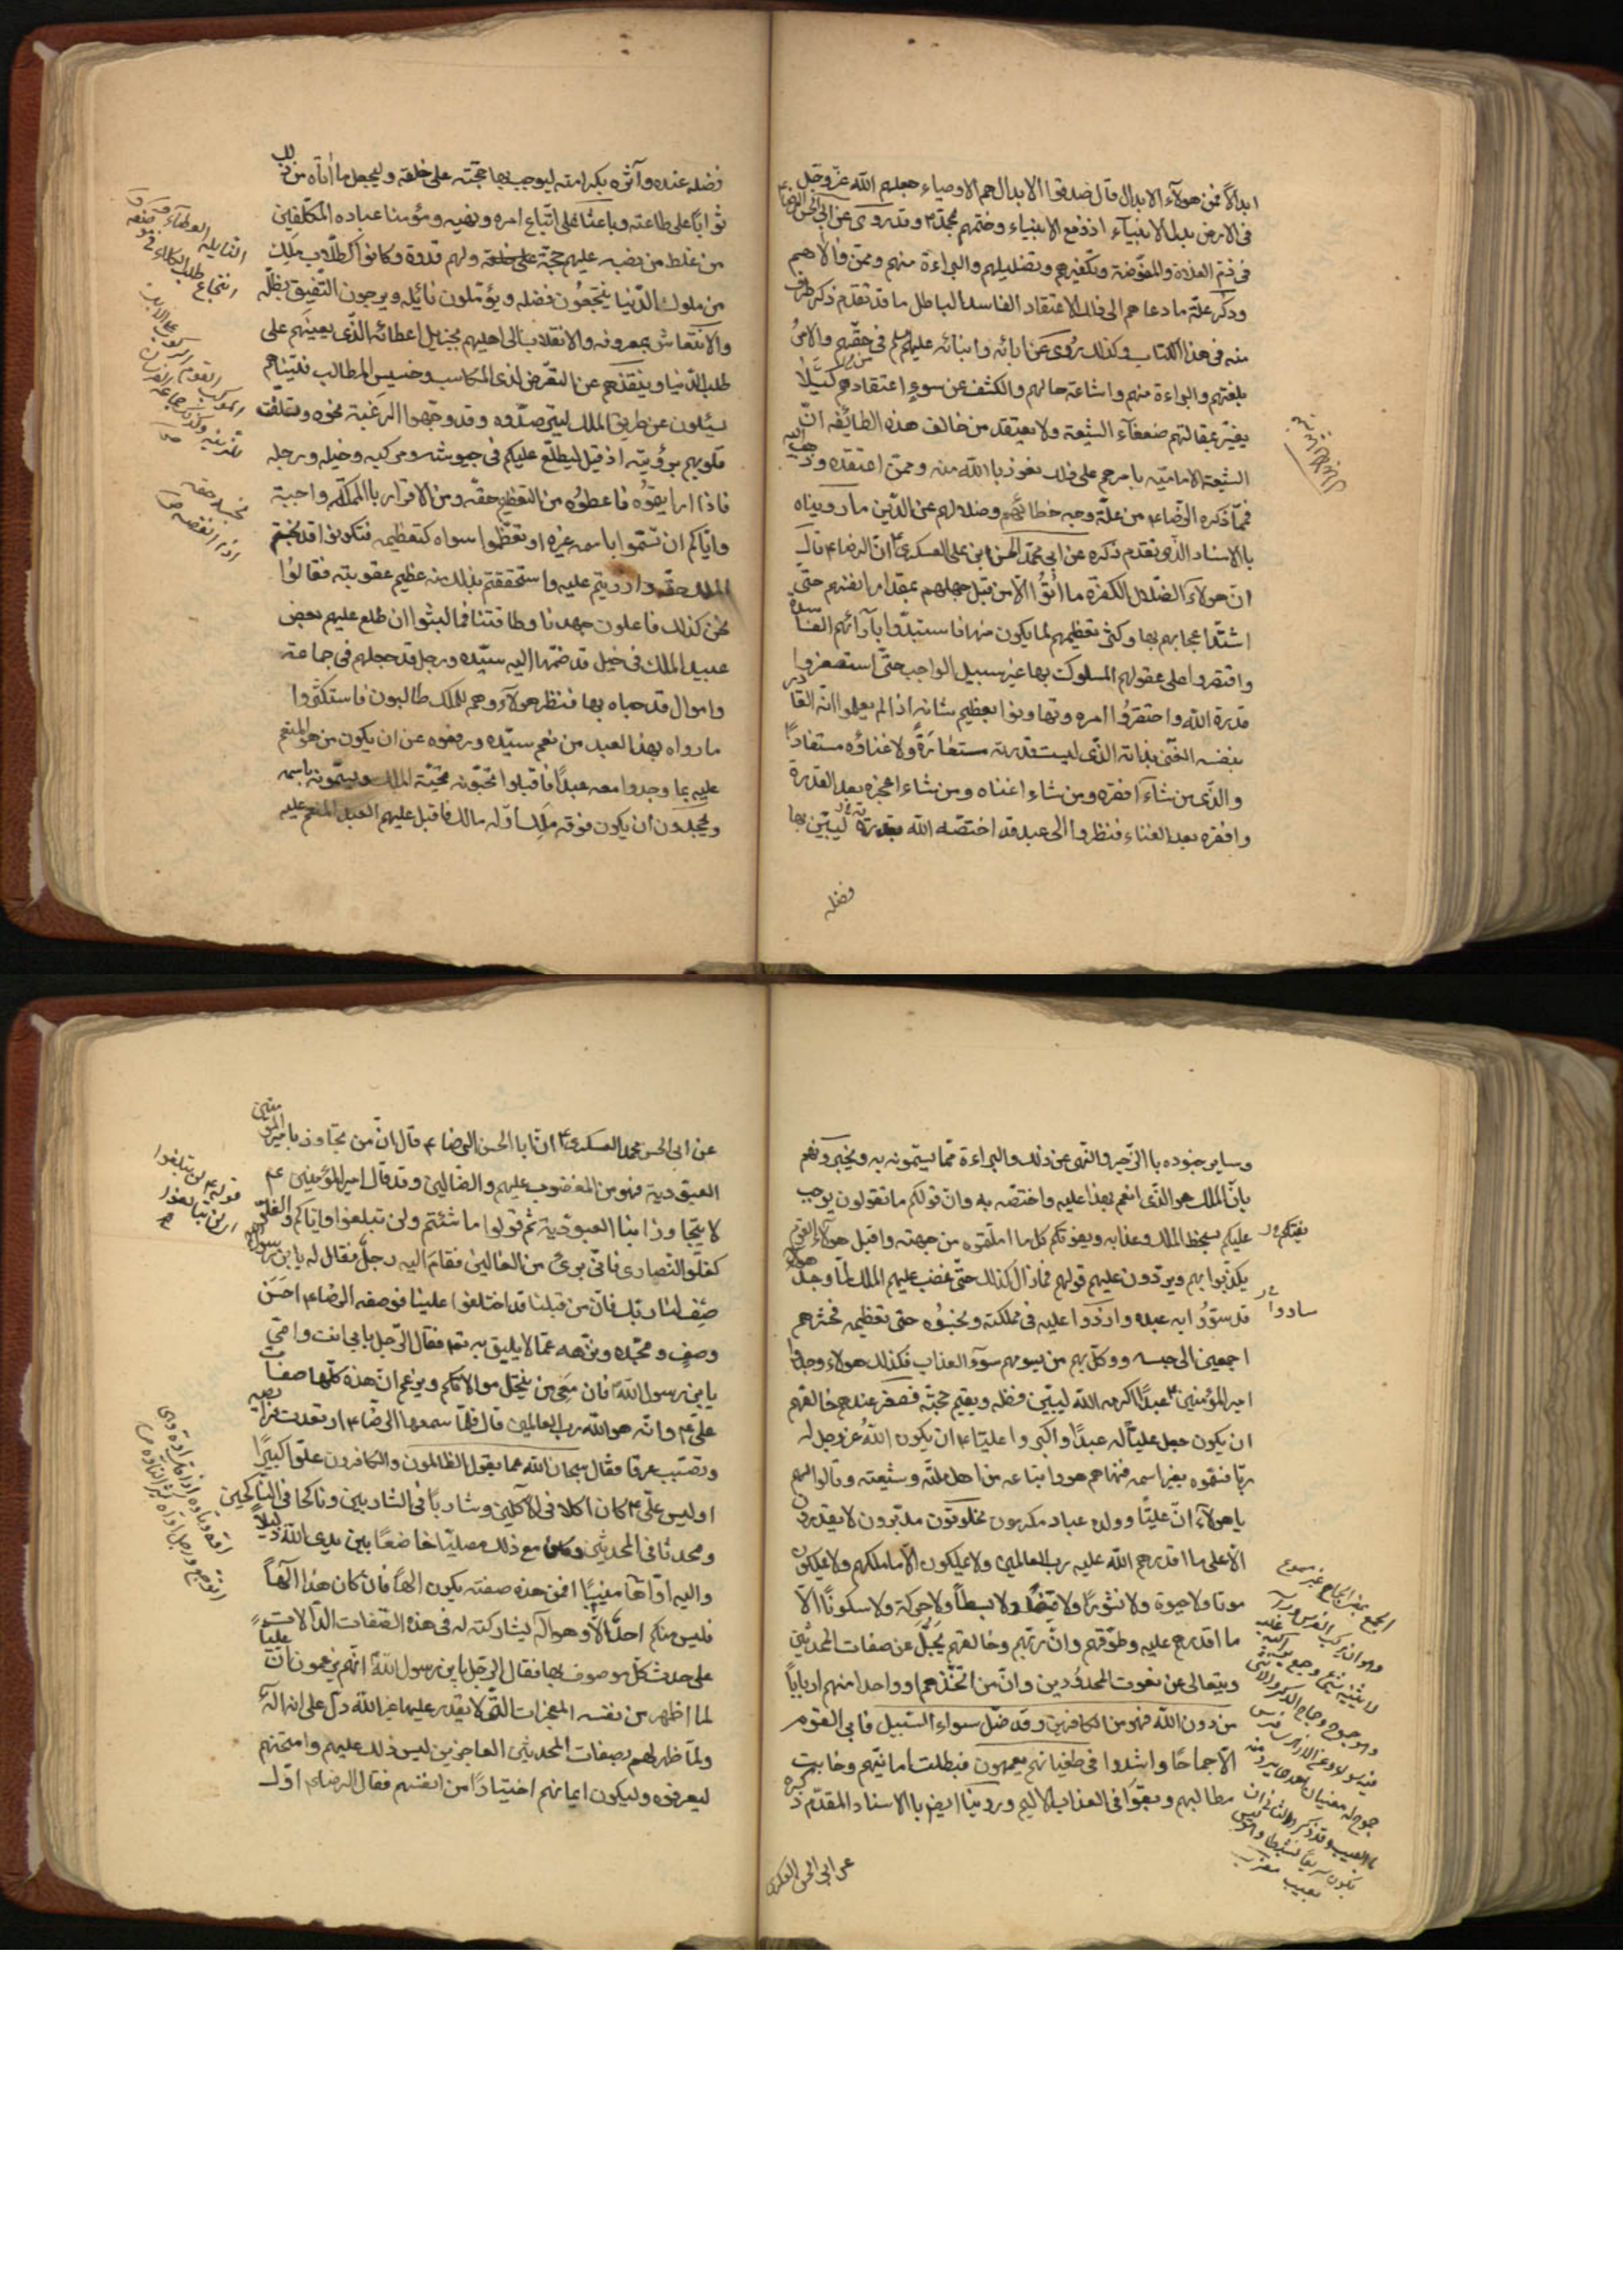 ابدالاً فمن هولآء الابدال قال صدقوا الابدال هم الاوصياء جعلهم الله عزّ وجل
فى الارض بدل الانبيآء اذ رفع الانبياء وختمهم محمّد ص وقد روى عن ابى الحسن الرضا ع
فى ذم الغلاة والمفوّضة وتكفيرهم وتضليلهم والبراءة منهم وممّن والاهم
وذكر علّة ما دعاهم الى ذلك الاعتقاد الفاسد الباطل ما قد تقدّم ذكر طرف
منه فى هذا الكتاب وكذلك رُوى عن ابائه وابنائه عليهم السلم فى حقّهم والامرُ
بلعنهم والبراءة منهم واشاعة حالهم والكشف عن سوءِ اعتقادهم كيَلا
يغترّ بمقالتهم ضعفآء الشيعة ولا يعتقد من خالف هذه الطائفه انّ
الشيعة الاماميّه باسرهم على ذلك نعوذ بالله منه وممّن اعتقده وذهب اليه
فممّا ذكره الرّضا ع من علّة وجه خطائهم وضلالهم عن الدّين ما رويناه
بالاسناد الذى تقدم ذكره عن ابى محمّد الحسن بن على العسكرى ع انّ الرضا ع قال
انّ هولآء الضّلال الكفرة ما اُتُوا الّا من قبل جهلهم بمقدار انفسهم حتّى
اشتدّ اعجابهم بها وكثر تعظيمهم لما يكون منها فاستبدّوا بآرائهم الفاسدة
واقتصروا على عقولهم المسلوك بها غير سبيل الواجب حتّى استصغروا
قدرة الله واحتقرُوا امره وتهاونوا بعظيم شانه اذ لم يعلموا انّه القادر
بنفسه الغنّى بذاته الذّى ليست قدرته مستعارَةً ولا غناؤه مستفاداً
والذّى من شآء افقره ومن شاء اغناه ومن شاء اعجزه بعد القدرة
وافقره بعد الغناء فنظروا الى عبد قد اختصّه الله بقدرته ليبيّن بها
فضله
فضله عنده وآثره بكرامته ليوجب بها حجّته على خلقه وليجعل ما اتاه من ذلك
ثوابًا على طاعته وباعثًا على اتّباع امره ونهيه ومؤمنا عباده المكلّفين
من غلط من نصبه عليهم حجّة ولهم قدوة وكانوا كطلّاب مَلِك
من ملوك الدّنيا ينتجعُون فضله ويؤمّلون نائله ويرجون التّفيؤ بظلّه
والانتعاش بمعروفه والانقلاب الى اهليهم بجزيل اعطائه الذّى يعينهم على
طلب الدّنيا وينقذهم عن التعّرض لدنى المكاسب وخسيس المطالب فبيناهم
يسئلون عن طريق الملك ليترصّدوه وقد وجّهوا الرغبة نحوه وتعلّقت
قلوبهم برؤيته اذ قيل ليطلّع عليكم فى جيوشه ومركبه وخيله ورجله
فاذا رايتموُه فاعطُوه من التعظيم حقّه ومن الاقرار بالمملكة واجبه
وايّاكم ان تسّموا باسمه غيره او تعظّموا سواه كتعظيمه فتكونوا قد بخستم
الملك حقّه وازريتم عليه واستحققتم بذلك منه عظيم عقوبته فقالوُا
نحن كذلك فاعلون جهدنا وطاقتنا فما لبثوا ان طلع عليهم بعض
عبيد الملك فى خيل قد ضمّها اليه سيّده ورجل قد جعلهم فى جماعته
واموال قد حباه بها فنظر هولآء وهم للملك طالبون فاستكثروا
ما رواه بهذا العبد من نعم سيّده ورفعوه عن ان يكون من هو المنعم
عليه بما وجدوا معه عبداً فاقبلوا يحّيونه تحيّة الملك ويسّمونه باسمه
ويجحدون ان يكون فوقه مَلِك او له مالك فاقبل عليهم العبد المنعم عليه
وساير جنوده بالزّجر والنّهى عن ذلك والبراءة ممّا يسمّونه به ويخبرونهم
بانّ الملك هو الذّى انعم بهذا عليه واختصّه به وانّ قولكم ما تقولون يوجب
عليكم سخط الملك وعذابه ويفوتكم كل ما املتموه من جهته واقبل هولآء القوم
يكذّبوا بهم ويردّون عليهم قولهم فما زال كذلك حتّى غضب عليهم الملك لمّا وجد هولاء
قد سوّوُا به عبده وازرَوا عليه فى مملكته وبخسُوه حق تعظيمه فحشرهم
اجمعين الى حبسه ووكّل بهم من يسومهم سوٓء العذاب فكذلك هولاء وجدوا
امير المؤمنين ع عبداً اكرمه الله ليبيّن فضله ويقيم حجّته فصغر عندهم خالقهم
ان يكون جعل عليًّا له عبدًا واكبروا عليًّا ع ان يكون اللهُ عز وجل له
ربًا فسّموه بغير اسمه فنهاهم هو واتباعه من اهل ملّته وشيعته وقالوا لهم
يا هولآء انّ عليًّا وولده عباد مكرمون مخلوقون مدبّرون لا يقدرون
الّا على ما اقدرهم الله عليه رب العالمين ولا يملكون الّا ما ملكهم ولا يملكون
موتا ولا حيوة ولا نشورًا ولا قبضًا ولا بسطاً ولا حركة ولا سكونًا الّا
ما اقدرهم عليه وطوّقهم وانّ ربّهم وخالقهم يجلّ عن صفات المحدثين
ويتعالى عن نعوت المحدُودين وانّ من اتّخذهم او واحدا منهم ارباباً
من دون الله فهو من الكافرين وقد ضلّ سواء السّبيل فابى القوم
الّا جماحًا واشتدوا فى طغيانهم يعمهون فبطلت امانيّهم وخابت
مطالبهم وبقوا فى العذاب الاليم وروينا ايضًا بالاسناد المقدّم ذكره
عن ابى الحسن العسكرى
عن ابى الحسن محمد العسكرى ع انّ ابا الحسن الرضا ع قال انّ من تجاوز بامير المؤمنين
العبوّدية فهو من المغضوب عليهم والضالين وقد قال امير المؤمنين عم
لا يتجاوزا بنا العبودّية ثم قولوا ما شئتم ولن تبلغوا وايّاكم والغلّو
كغلو النّصارى فانّى برئ من الغالين فقام اليه رجلٌ فقال له يا بن رسول الله
صِف لنا ربّك فانّ من قبلنا قد اختلفوا علينا فوصفه الرضا ع احسَن
وصفٍ ومجّده ونزّهه عمّا لا يليق به تعم فقال الرّجل بابى انت وامّى
يا بن رسول الله ص فانّ مَعِى من ينتحل موالاتكم ويزعم انّ هذه كلّها صفات
علىّ عم وانّه هو الله رب العالمين قال فلمّا سمعها الرضّا ع ارتعدت فرائصه
وتصّبب عرقا فقال سبحان الله عما يقول الظّالمون والكافرون علّوا كبيرًا
او ليس علّى ع كان اكلا فى الآكلين وشاربًا فى الشاربين وناكحا فى النّاكحين
ومحدثا فى المحدثين وكان مع ذلك مصليًّا خاضعًا بين يدى الله ذليلاً
واليه اوّاهًا منيبًا افمن هذه صفته يكون الهًا فان كان هذا آلهاً
فليس منكم احدٌ الّا وهو اله لمشاركته له فى هذه الصّفات الدّالات
على حدث كلّ موصوف بها فقال الرّجل يا بن رسول الله ص انّهم يزعمون انّ عليّاً
لما اظهر من نفسه المعجزات التّى لا يقدر عليها غير الله دلّ على انه الهٌ
ولمّا ظهر لهم بصفات المحدثين العاجزين لبس ذلك عليهم وامتحنهم
ليعرفوه وليكون ايمانهم اختيارًا من انفسهم فقال الرضا ع اوّل